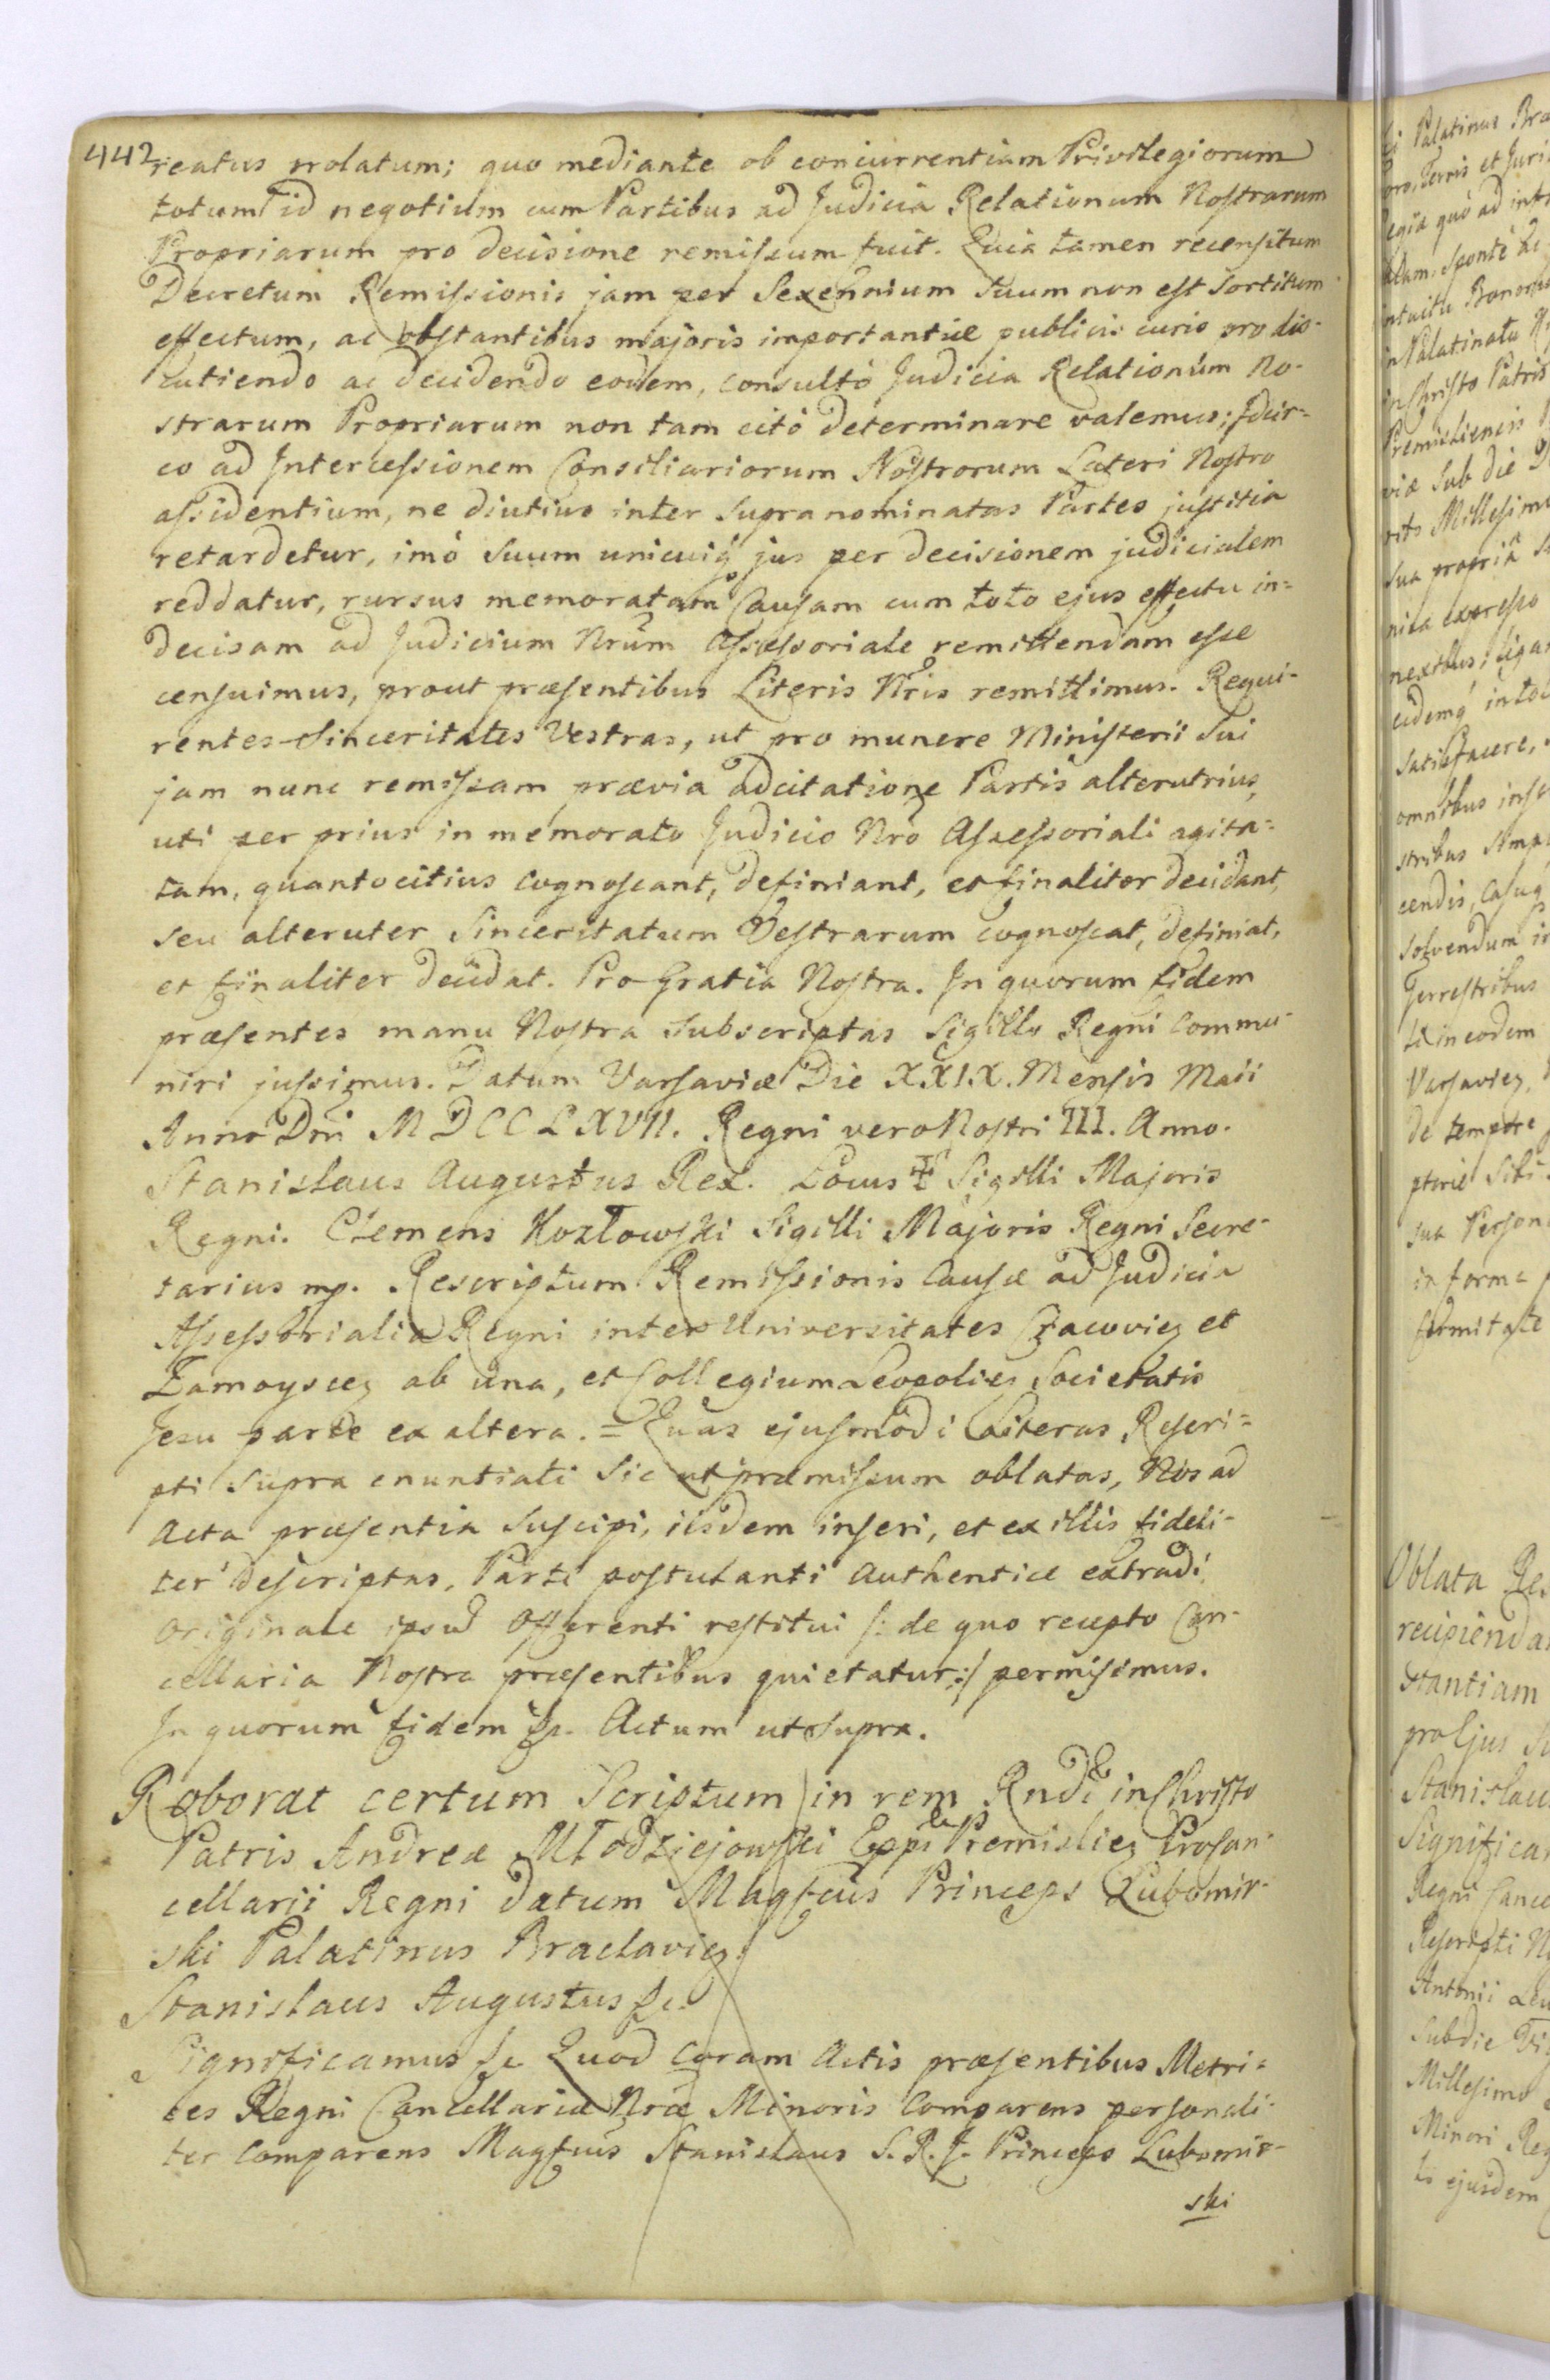 442
reatus prolatum; quo mediante ob concurrentiam Privilegiorum
totum id negotium cum Partibus ad Judicia Relationum Nostrarum
Propriarum pro decisione remissum fuit. Quia tamen recensitum
Decretum Remissionis jam per Sexennium suum non est sortitum
effectum, ac obstantibus majoris importantiæ publicis curis pro dis-
cutiendo ac decidendo eodem, consultò Judicia Relationum No-
strarum Propriarum non tam citò determinare valemus; Idcir=
co ad Intercessionem Consiliariorum Nostrorum Lateri Nostro
assidentium, ne diutius inter supranominatas Partes justitia
retardetur, imò suum unicuiq jus per decisionem judicialem
reddatur, rursus memoratam Causam cum toto ejus effectu in=
decisam ad Judicium Nrum Assessoriale remittendam esse
censuimus, prout præsentibus Literis Nris remittimus. Requi-
rentes Sinceritates Vestras, ut pro munere Ministerii Sui
jam nunc remissam prævia adcitatione Partis alterutrius,
uti per prius in memorato Judicio Nro Assessoriali agita=
tam, quantocitius cognoscant, definiant, et finaliter decidant,
seu alteruter Sinceritatum Vestrarum cognoscat, definiat,
et finaliter decidat. Pro Gratia Nostra. In quorum fidem
præsentes manu Nostra subscriptas Sigillo Regni commu-
niri jussimus. Datum Varsaviæ Die XXIX. Mensis Maii
Anno Dni MDCCLXVII. Regni vero Nostri III. Anno.
Stanislaus Augustus Rex. Locus Sigilli Majoris
Regni. Clemens Kozłowski Sigilli Majoris Regni Secre-
tarius mp. Rescriptum Remissionis Causæ ad Judicia
Assessorialia Regni inter Universitates Cracovien et
Zamoyscen ab una, et Collegium Leopolien Societatis
Jesu parte ex altera. = Quas ejusmodi Literas Rescri=
pti supra enuntiati sic ut præmissum oblatas, Nos ad
Acta præsentia suscipi, iisdem inseri, et ex illis fideli-
ter descriptas, Parti postulanti authenticè extradi
Originale ipsud Offerenti restitui /: de quo recepto Can-
cellaria Nostra præsentibus quietatur :/ permisimus.
In quorum fidem &c. Actum ut supra.
Roborat certum Scriptum in rem Rndi in Christo
Patris Andreæ Młodziejowski Eppi Premislien Procan-
cellarii Regni datum Magfcus Princeps Lubomir-
ski Palatinus Braclavien
Stanislaus Augustus &c.
Significamus &c. Quod coram Actis præsentibus Metri=
ces Regni Cancellariæ Nræ Minoris Comparens personali-
ter comparens Magfcus Stanislaus S.R.J. Princeps Lubomir-
ski
Palatinus
Terris et Juri
quò ad
sponte
intuitu
in Palatinatu
in Christo Patris
Premisliensis
viæ sub die
Millesimo
sua propria
expresso
in
satisfacere,
omnibus
cendis,
solvendum
Terrestribus
in eodem
Varsavien
de tempore
sua
in forma
Oblata
recipienda
stantiam
pro Ejus
Stanislaus
Significa
Regni Cance
Rescripti
Antonii
sub die
Millesimo
Minori Reg
ejusdem